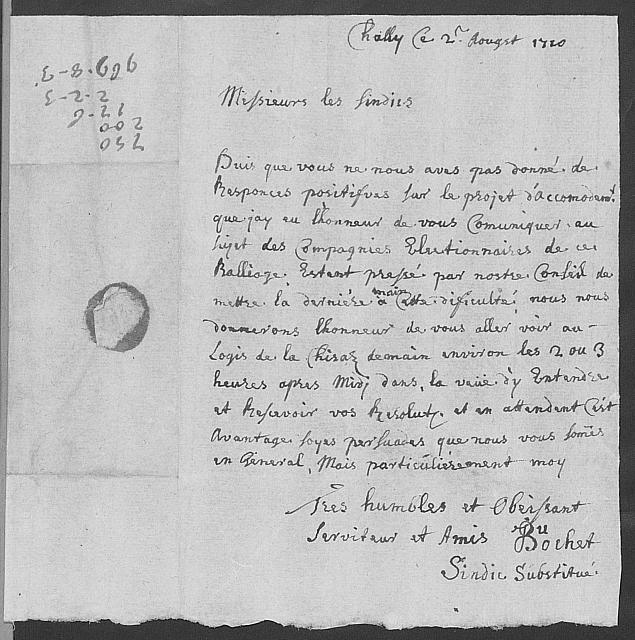 Chally Ce 2.e Aougst 1720
Messieurs les Sindics
Puis que vous ne nous aves pas donné de
Responces positifves sur le projet d'accomodemt.
que jay eu lhonneur de vous Comuniquer au
sujet des Compagnies Electionnaires de ce
Balliage. Estant pressé par nostre Conseil de
mettre la derniere main a Cette dificulté, nous nous
donnerons lhonneur de vous aller voir au-
Logis de la demain environ les 2 ou 3
heures apres Midj dans la veüe d'y Entendre
et Resevoir vos et en attendant C'est
Avantage soyes persuades que nous vous somes
en General, Mais particuliérement moy
Tres humbles et Obeissant
Serviteur et Amis Du
Bochet
Sindic Substitué.
696.-8-3.
2-2-3
12-6
200
250